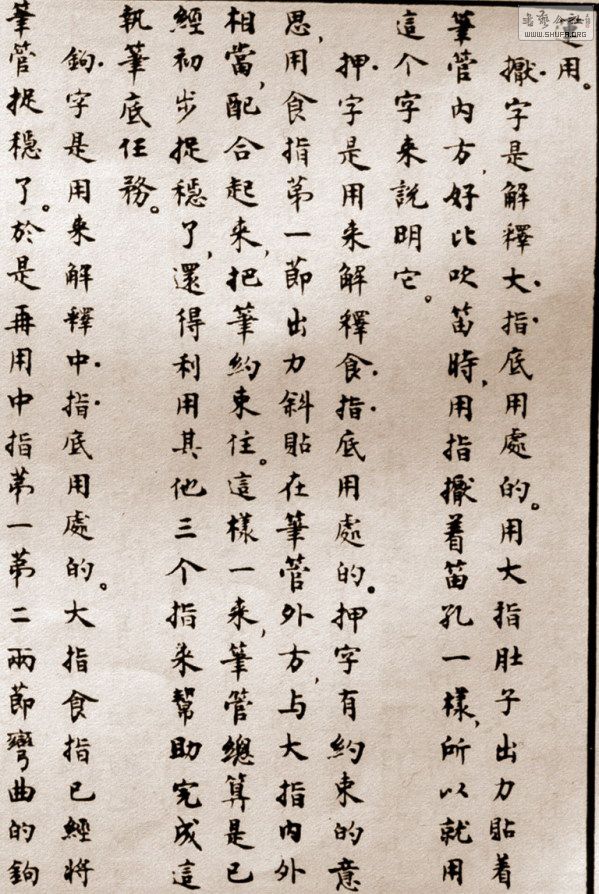 運用。
擫字是解釋大指底用處的。用大指肚子出力貼着
筆管内方,好比吹笛時,用指擫着笛孔一樣,所以就用
這个字来說明它。
押字是用来解釋食指底用處的。押字有約束的意
思,用食指苐一節出力斜貼在筆管外方,与大指内外
相當,配合起来,把筆約束住。這樣一来,筆管總算是已
經初步捉穩了,還得利用其他三个指来幫助完成這
執筆底任務。
鉤字是用来解釋中指底用處的。大指食指已經將
筆管捉穩了。於是再用中指苐一苐二兩節彎曲的鉤
書藝公社
WWW.SHUFA.ORG